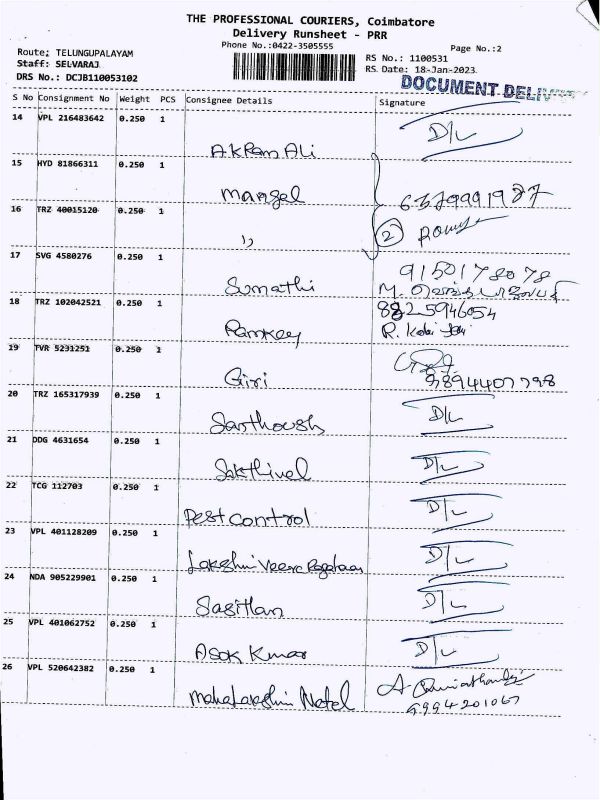 THE PROFESSIONAL COURIERS, Coimbatore
Delivery Runsheet - PRR
Phone No.:0422-3505555
Page No.:2
Route: TELUNGUPALAYAM
Staff: SELVARAJ
DRS No.: DCJB110053102
RS No.: 1100531
RS Date: 18-Jan-2023
DOCUMENT DELIV
S No Consignment No Weight PCS Consignee Details Signature
14 VPL 216483642 0.250 1 D/L
AKRam Ali
15 HYD 81866311 0.250 1
Mangal 6379991987
16 TRZ 40015120 0.250 1
,, 2
17 SVG 4580276 0.250 1 9150178078
Sumathi M.
18 TRZ 102042521 0.250 1 8825946054
Ramkey R.
19 TVR 5231251 0.250 1
Giri 9894407798
20 TRZ 165317939 0.250 1 D/L
Santhoush
21 DDG 4631654 0.250 1 D/L
Sakthivel
22 TCG 112703 0.250 1 D/L
Pest Control
23 VPL 401128209 0.250 1 D/L
Lakshmi Veera
24 NDA 905229901 0.250 1 D/L
25 VPL 401062752 0.250 1 D/L
Asok Kumar
26 VPL 520642382 0.250 1 A
Mahalakshmi 9994201067